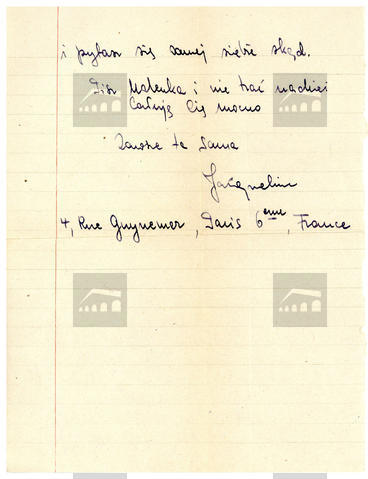 i pytasz się samej siebie skąd.
Pisz Malenka i nie trać nadziei
Całuję Cię mocno
Zawsze ta sama
Jacqueline
4, Rue Guynemer, Paris 6ème, France